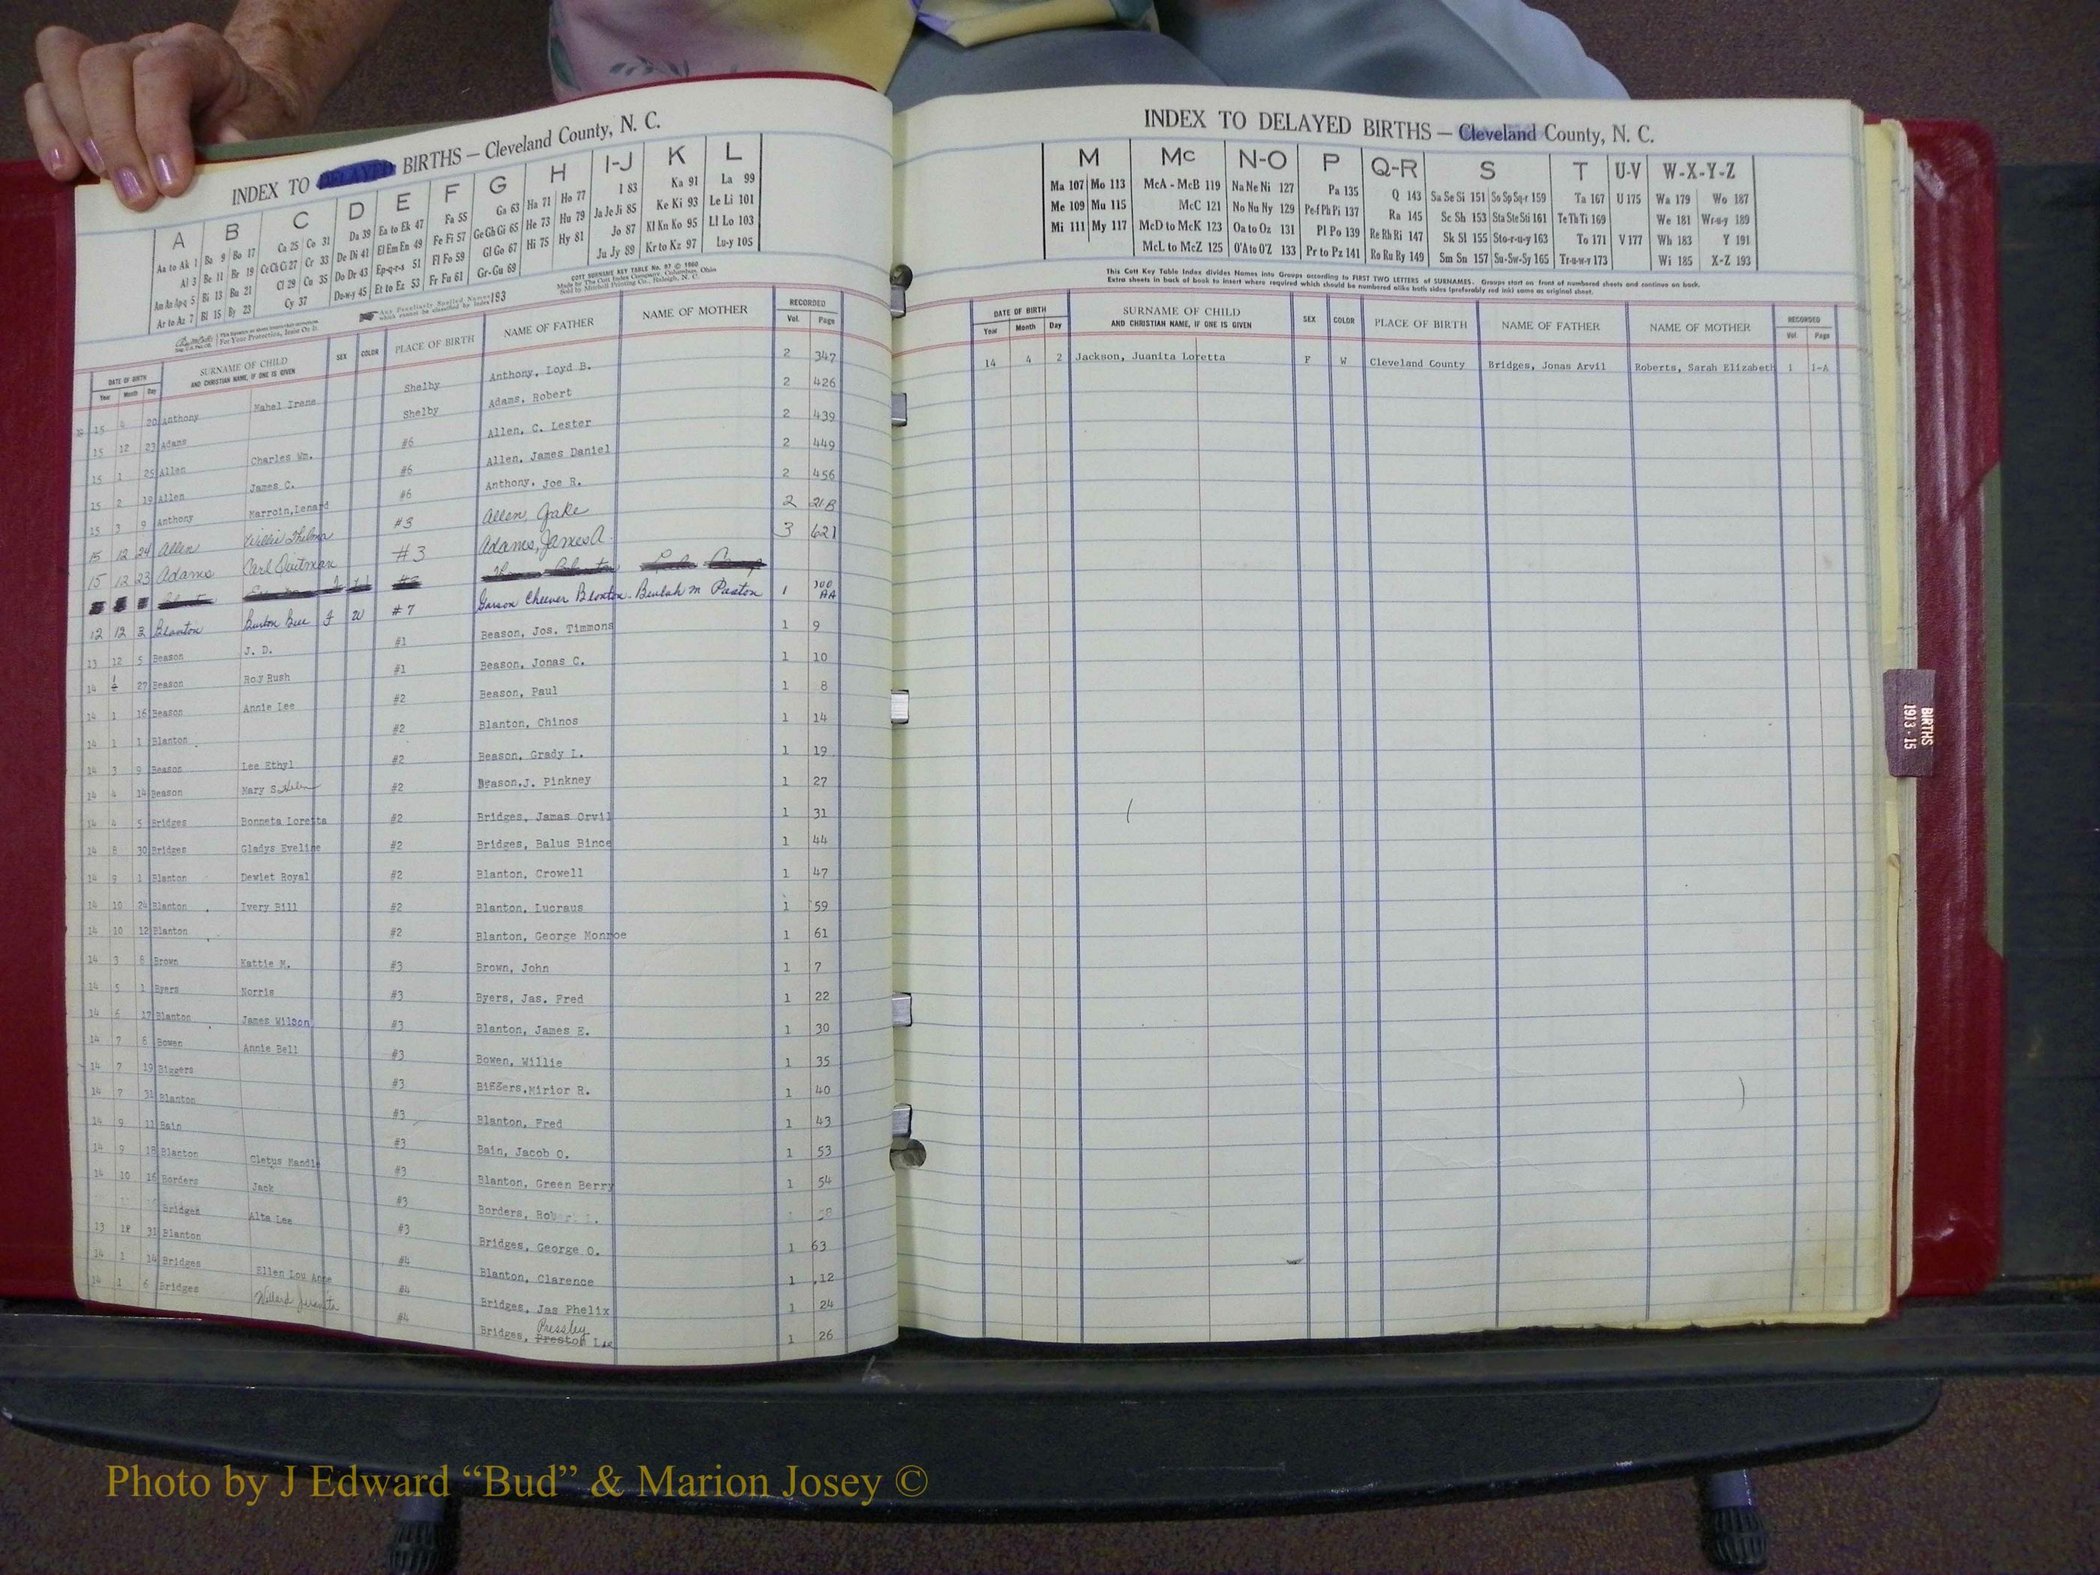 INDEX TO DELAYED BIRTHS — Cleveland County, N. C.
A B C D E F G H I-J K L
Aa to Ak 1 Ba 9 Bo 17 Ca 25 Co 31 Da 39 Ea to Ek 47 Fa 55 Ga 63 Ha 71 Ho 77 I 83 Ka 91 La 99
Al 3 Be 11 Br 19 Ce Ch Ci 27 Cr 33 De Di 41 El Em En 49 Fe Fi 57 Ge Gh Gi 65 He 73 Hu 79 Ja Je Ji 85 Ke Ki 93 Le Li 101
Am An Ap-q 5 Bi 13 Bu 21 Cl 29 Cu 35 Do Dr 43 Ep-q-r-s 51 Fl Fo 59 Gl Go 67 Hi 75 Hy 81 Jo 87 Kl Kn Ko 95 Ll Lo 103
Ar to Az 7 Bl 15 By 23 Cy 37 Du-w-y 45 Et to Ez 53 Fr Fu 61 Gr-Gu 69 Ju Jy 89 Kr to Kz 97 Lu-y 105
For Your Protection, Insist On It.
Any Peculiarly Spelled Names which cannot be classified by Index 193
COTT SURNAME KEY TABLE No. 97 © 1960
Made by The Cott Index Company, Columbus, Ohio
Sold by Mitchell Printing Co., Raleigh, N. C.
DATE OF BIRTH SURNAME OF CHILD SEX COLOR PLACE OF BIRTH NAME OF FATHER NAME OF MOTHER RECORDED
Year Month Day AND CHRISTIAN NAME, IF ONE IS GIVEN Vol. Page
15 4 20 Anthony Mabel Irene Shelby Anthony, Loyd B. 2 347
15 12 23 Adams Shelby Adams, Robert 2 426
15 1 25 Allen Charles Wm. #6 Allen, C. Lester 2 439
15 2 19 Allen James C. #6 Allen, James Daniel 2 449
15 3 9 Anthony Marroin, Lenard #6 Anthony, Joe R. 2 456
15 12 24 Allen Willie Thelma #3 Allen, Jake 2 21B
15 12 23 Adams Carl Quitman #3 Adams, James A. 3 621
12 12 2 Blanton Burton Bee F W #7 Garson Cheever Blanton Beulah M Paston 1 AA
13 12 5 Beason J. D. #1 Beason, Jos. Timmons 1 9
14 1 27 Beason Roy Rush #1 Beason, Jonas C. 1 10
14 1 16 Beason Annie Lee #2 Beason, Paul 1 8
14 1 1 Blanton #2 Blanton, Chinos 1 14
14 3 9 Beason Lee Ethyl #2 Beason, Grady L. 1 19
14 4 14 Beason Mary S. Helen #2 Beason, J. Pinkney 1 27
14 4 5 Bridges Bonneta Loretta #2 Bridges, Jamas Orvil 1 31
14 8 30 Bridges Gladys Eveline #2 Bridges, Balus Bince 1 44
14 9 1 Blanton Dewiet Royal #2 Blanton, Crowell 1 47
14 10 24 Blanton Ivery Bill #2 Blanton, Lucraus 1 59
14 10 12 Blanton #2 Blanton, George Monroe 1 61
14 3 8 Brown Kattie M. #3 Brown, John 1 7
14 5 1 Byers Norris #3 Byers, Jas. Fred 1 22
14 6 17 Blanton James Wilson #3 Blanton, James E. 1 30
14 7 6 Bowen Annie Bell #3 Bowen, Willie 1 35
14 7 19 Biggers #3 Biggers, Mirior R. 1 40
14 7 31 Blanton #3 Blanton, Fred 1 43
14 9 11 Bain #3 Bain, Jacob O. 1 53
14 9 18 Blanton Cletus Mandle #3 Blanton, Green Berry 1 54
14 10 16 Borders Jack #3 Borders, 58
Bridges Alta Lee #3 Bridges, George O. 1 63
13 12 31 Blanton #4 Blanton, Clarence 1 12
14 1 14 Bridges Ellen Lou Anne #4 Bridges, Jas Phelix 1 24
14 1 6 Bridges Willard Juranita #4 Bridges, Preston Pressley Lee 1 26
INDEX TO DELAYED BIRTHS — Cleveland County, N. C.
M Mc N-O P Q-R S T U-V W-X-Y-Z
Ma 107 Mo 113 McA - McB 119 Na Ne Ni 127 Pa 135 Q 143 Sa Se Si 151 So Sp Sq-r 159 Ta 167 U 175 Wa 179 Wo 187
Me 109 Mu 115 McC 121 No Nu Ny 129 Pe-f Ph Pi 137 Ra 145 Sc Sh 153 Sta Ste Sti 161 Te Th Ti 169 We 181 Wr-u-y 189
Mi 111 My 117 McD to McK 123 Oa to Oz 131 Pl Po 139 Re Rh Ri 147 Sk Sl 155 Sto-r-u-y 163 To 171 V 177 Wh 183 Y 191
McL to McZ 125 O'A to O'Z 133 Pr to Pz 141 Ro Ru Ry 149 Sm Sn 157 Su-Sw-Sy 165 Tr-u-w-y 173 Wi 185 X-Z 193
This Cott Key Table Index divides Names into Groups according to FIRST TWO LETTERS of SURNAMES. Groups start on front of numbered sheets and continue on back.
Extra sheets in back of book to insert where required which should be numbered alike both sides (preferably red ink) same as original sheet.
DATE OF BIRTH SURNAME OF CHILD SEX COLOR PLACE OF BIRTH NAME OF FATHER NAME OF MOTHER RECORDED
Year Month Day AND CHRISTIAN NAME, IF ONE IS GIVEN Vol. Page
14 4 2 Jackson, Juanita Loretta F W Cleveland County Bridges, Jonas Arvil Roberts, Sarah Elizabeth 1 1-A
BIRTHS
1913 - 15
Photo by J Edward “Bud” & Marion Josey ©